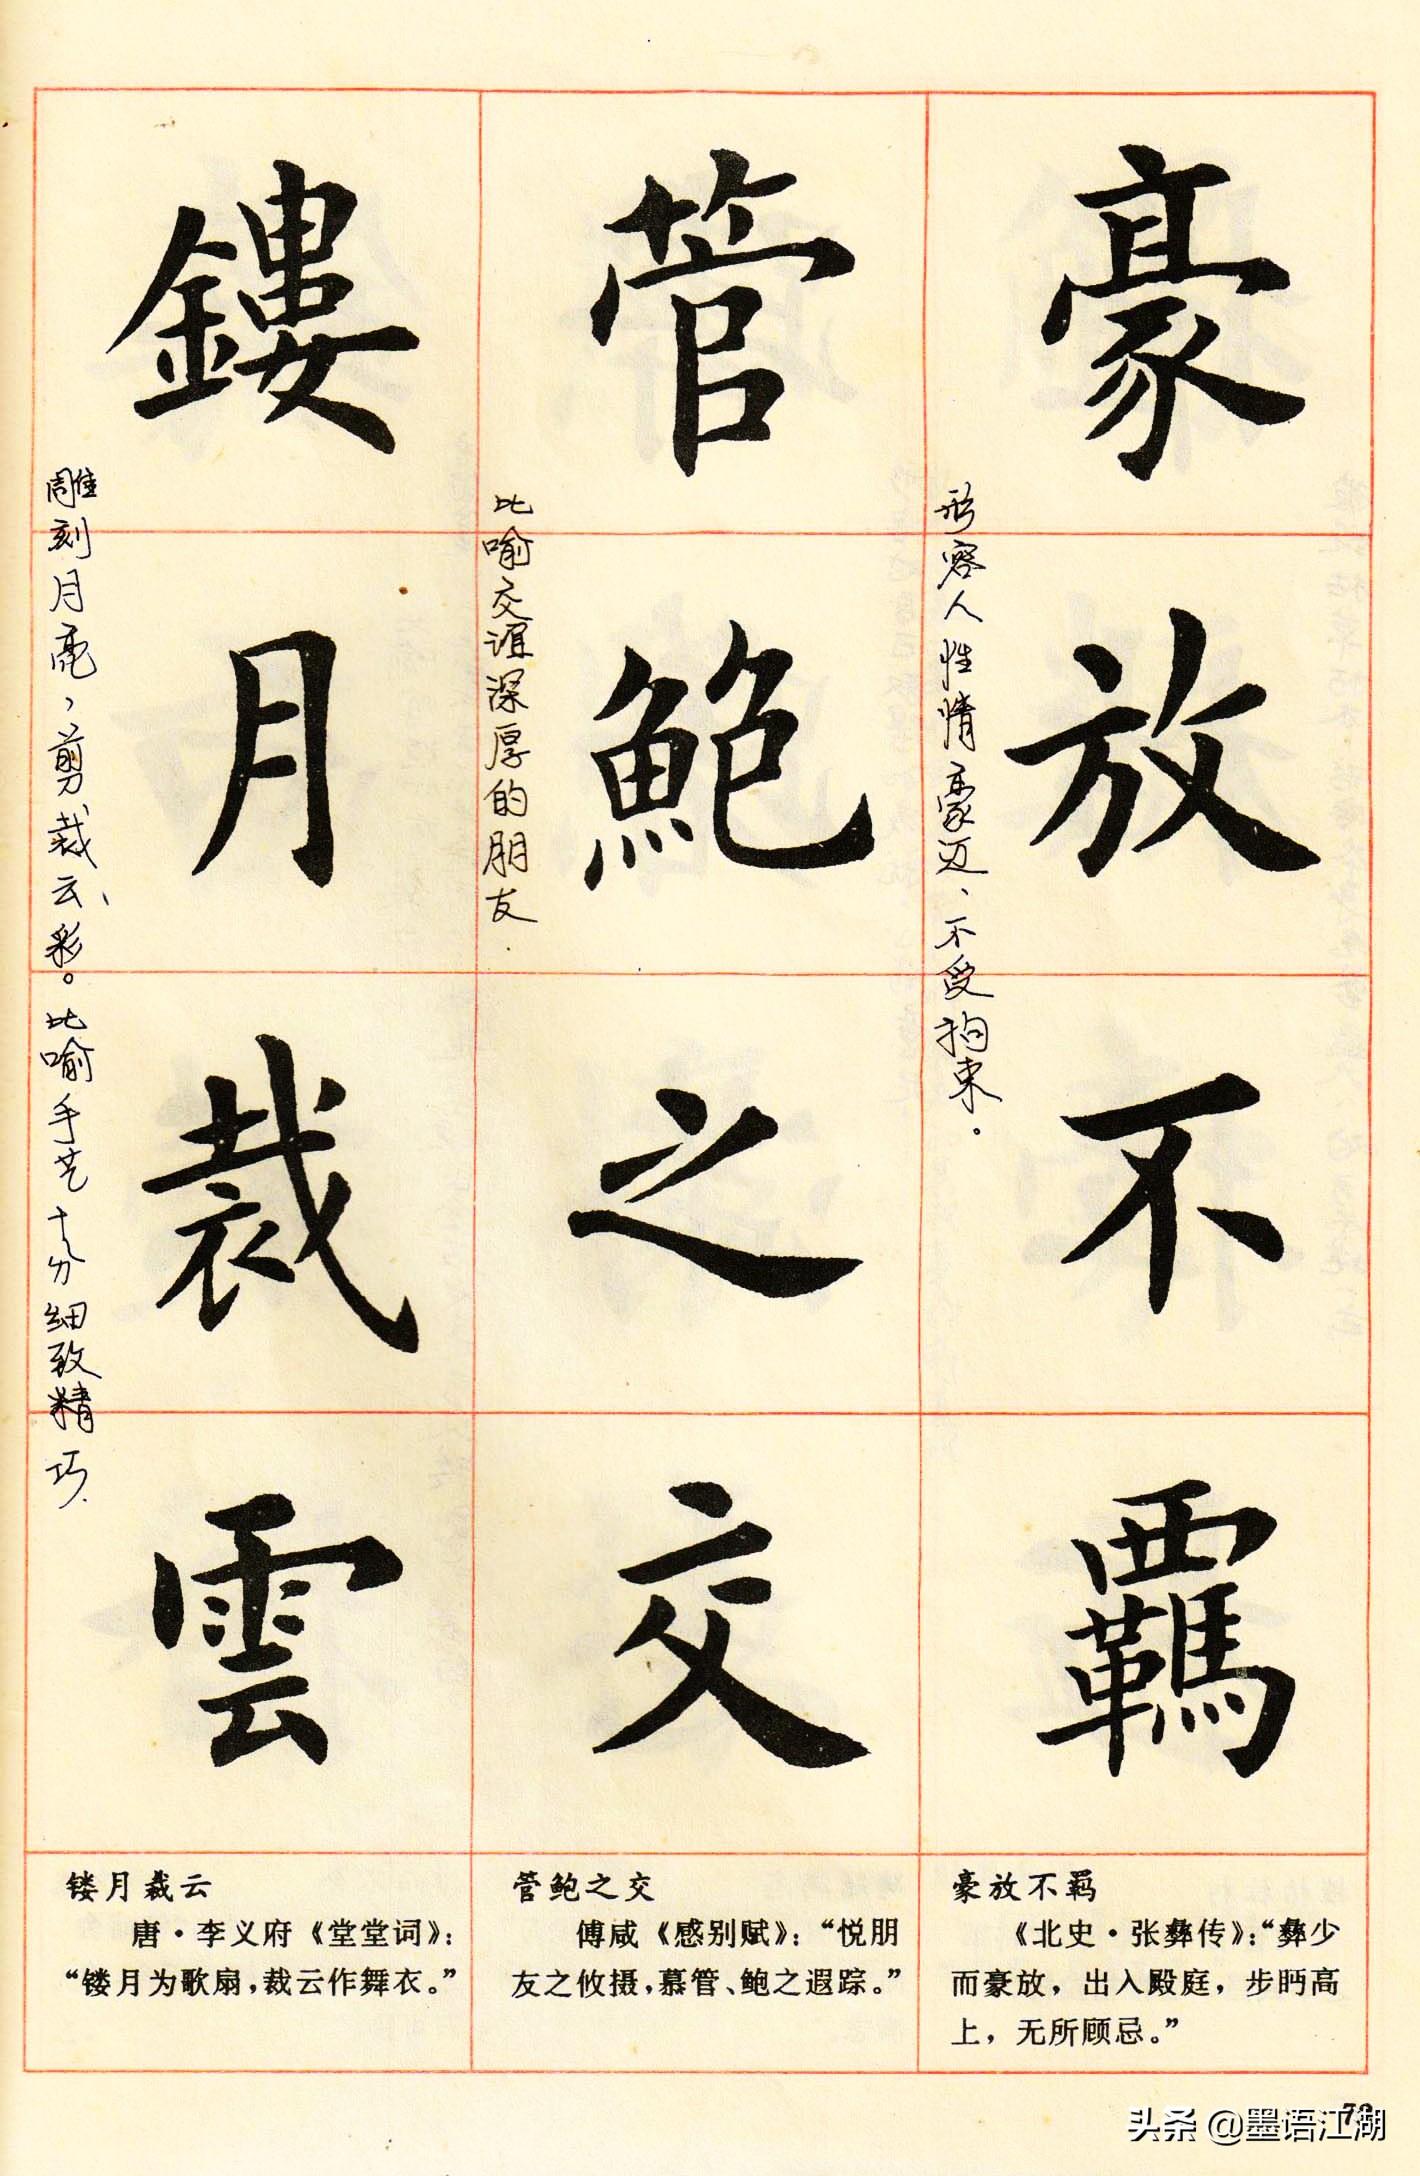 豪放不羈
形容人性情豪迈、不受拘束。
管鮑之交
比喻交谊深厚的朋友.
鏤月裁雲
雕刻月亮,剪裁云彩。比喻手艺十分细致精巧.
豪放不羁
《北史·张彝传》:“彝少
而豪放,出入殿庭,步眄高
上,无所顾忌。”
管鲍之交
傅咸《感别赋》:“悦朋
友之攸摄,慕管、鲍之遐踪。”
镂月裁云
唐·李义府《堂堂词》:
“镂月为歌扇,裁云作舞衣。”
头条 @墨语江湖